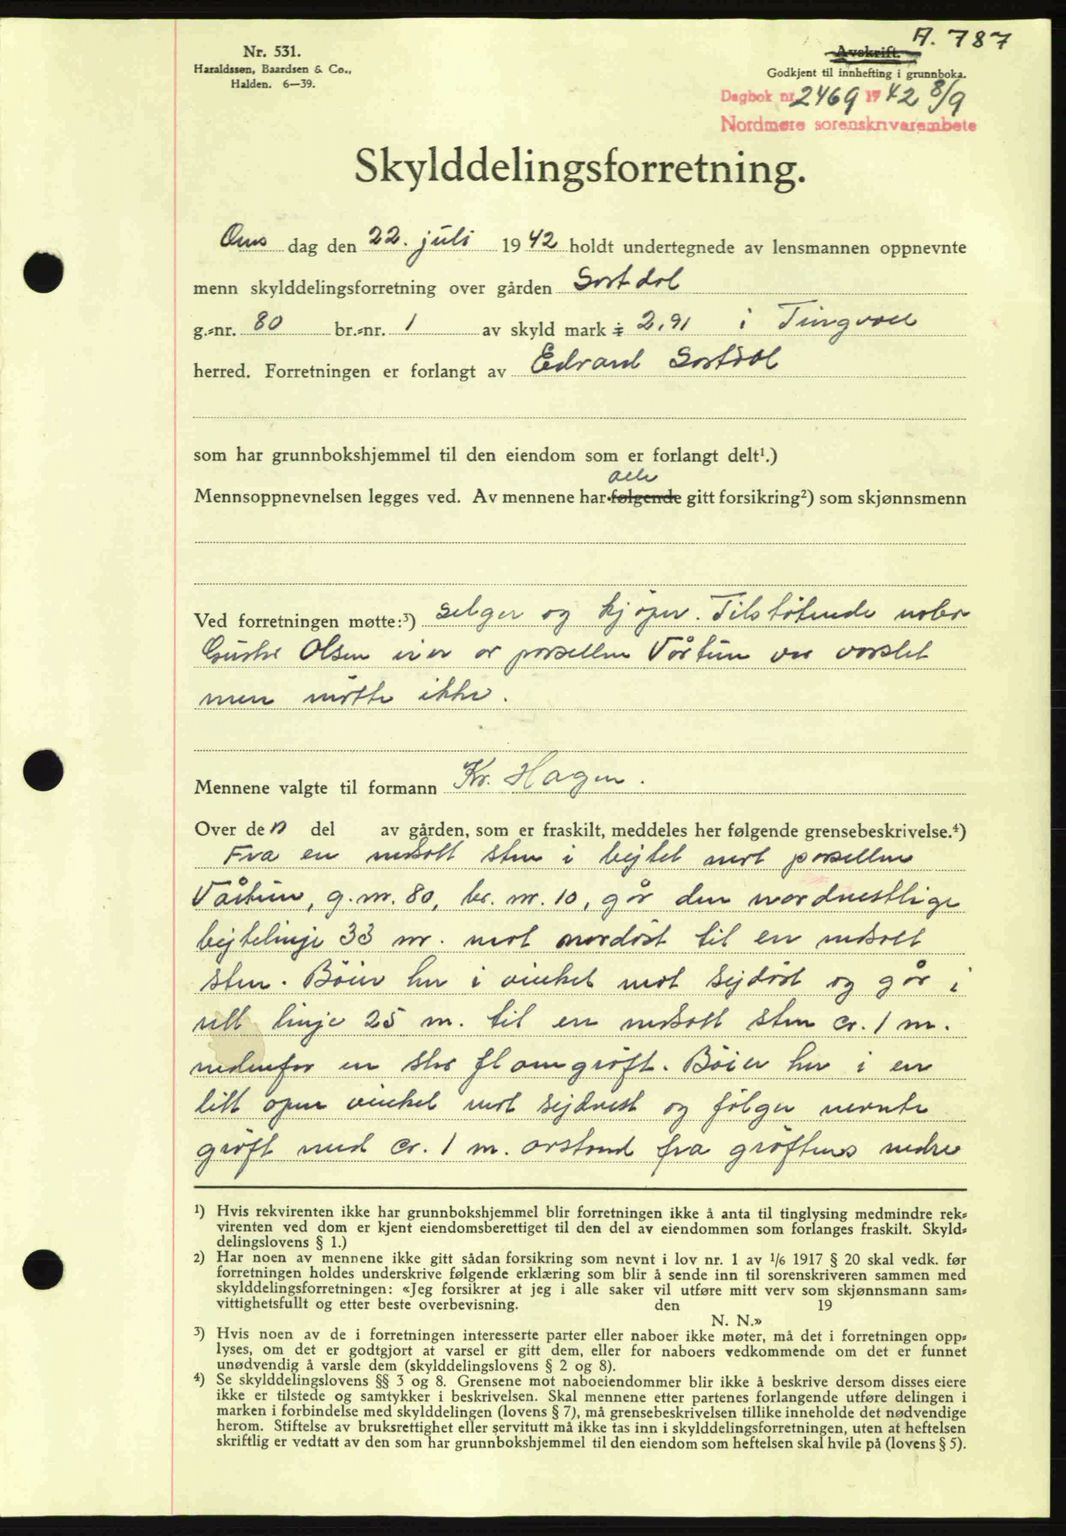 A. 787
Nr. 531.
Haraldssen, Baardsen & Co.,
Halden. 6—39.
Avskrift.
Godkjent til innhefting i grunnboka.
Dagbok nr. 2469 1942 8/9
Nordmøre sorenskrivarembete
Skylddelingsforretning.
Ons dag den 22. juli 1942 holdt undertegnede av lensmannen oppnevnte
menn skylddelingsforretning over gården Sørtdal
g.-nr. 80 br.-nr. 1 av skyld mark 2,91 i Tingvoll
herred. Forretningen er forlangt av Edvard Sørtdal
som har grunnbokshjemmel til den eiendom som er forlangt delt¹.)
alle
Mennsoppnevnelsen legges ved. Av mennene har følgende gitt forsikring²) som skjønnsmenn
Ved forretningen møtte:³) selger og kjøper. Tilstøtende nabo
Olsen eier av parsellen Våtun var varslet
men møtte ikke.
Mennene valgte til formann Kr. Hagen.
Over den del av gården, som er fraskilt, meddeles her følgende grensebeskrivelse.⁴)
Fra en nedsatt sten i bejtet mot parsellen
Våtun, g. nr. 80, br. nr. 10, går den nordvestlige
bejtelinje 33 m. mot nordøst til en nedsatt
sten. Bøier her i vinkel mot sejdøst og går i
rett linje 25 m. til en nedsatt sten ca. 1 m.
nedenfor en stor flomgrøft. Bøier her i en
litt open vinkel mot sejdvest og følger nevnte
grøft med ca. 1 m. avstand fra grøftens nedre
¹) Hvis rekvirenten ikke har grunnbokshjemmel blir forretningen ikke å anta til tinglysing medmindre rek-
virenten ved dom er kjent eiendomsberettiget til den del av eiendommen som forlanges fraskilt. Skyld-
delingslovens § 1.)
²) Har noen av mennene ikke gitt sådan forsikring som nevnt i lov nr. 1 av 1/6 1917 § 20 skal vedk. før
forretningen holdes underskrive følgende erklæring som blir å sende inn til sorenskriveren sammen med
skylddelingsforretningen: «Jeg forsikrer at jeg i alle saker vil utføre mitt verv som skjønnsmann sam-
vittighetsfullt og etter beste overbevisning. den 19
N. N.»
³) Hvis noen av de i forretningen interesserte parter eller naboer ikke møter, må det i forretningen opp-
lyses, om det er godtgjort at varsel er gitt dem, eller for naboers vedkommende om det er funnet
unødvendig å varsle dem (skylddelingslovens § 2 og 8).
⁴) Se skylddelingslovens §§ 3 og 8. Grensene mot naboeiendommer blir ikke å beskrive dersom disses eiere
ikke er tilstede og samtykker i beskrivelsen. Skal mennene etter partenes forlangende utføre delingen i
marken i forbindelse med skylddelingen (lovens § 7), må grensebeskrivelsen tillike inneholde det nødvendige
herom. Stiftelse av bruksrettighet eller servitutt må ikke tas inn i skylddelingsforretningen, uten at heftelsen
skriftlig er vedtatt av den som har grunnbokshjemmel til den eiendom som heftelsen skal hvile på (lovens § 5).